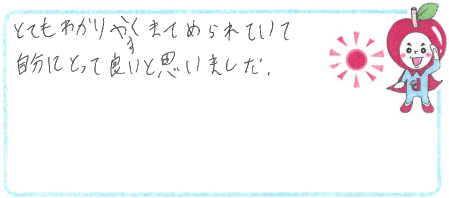 とてもわかりやすくまとめられていて
自分にとって良いと思いました。
d